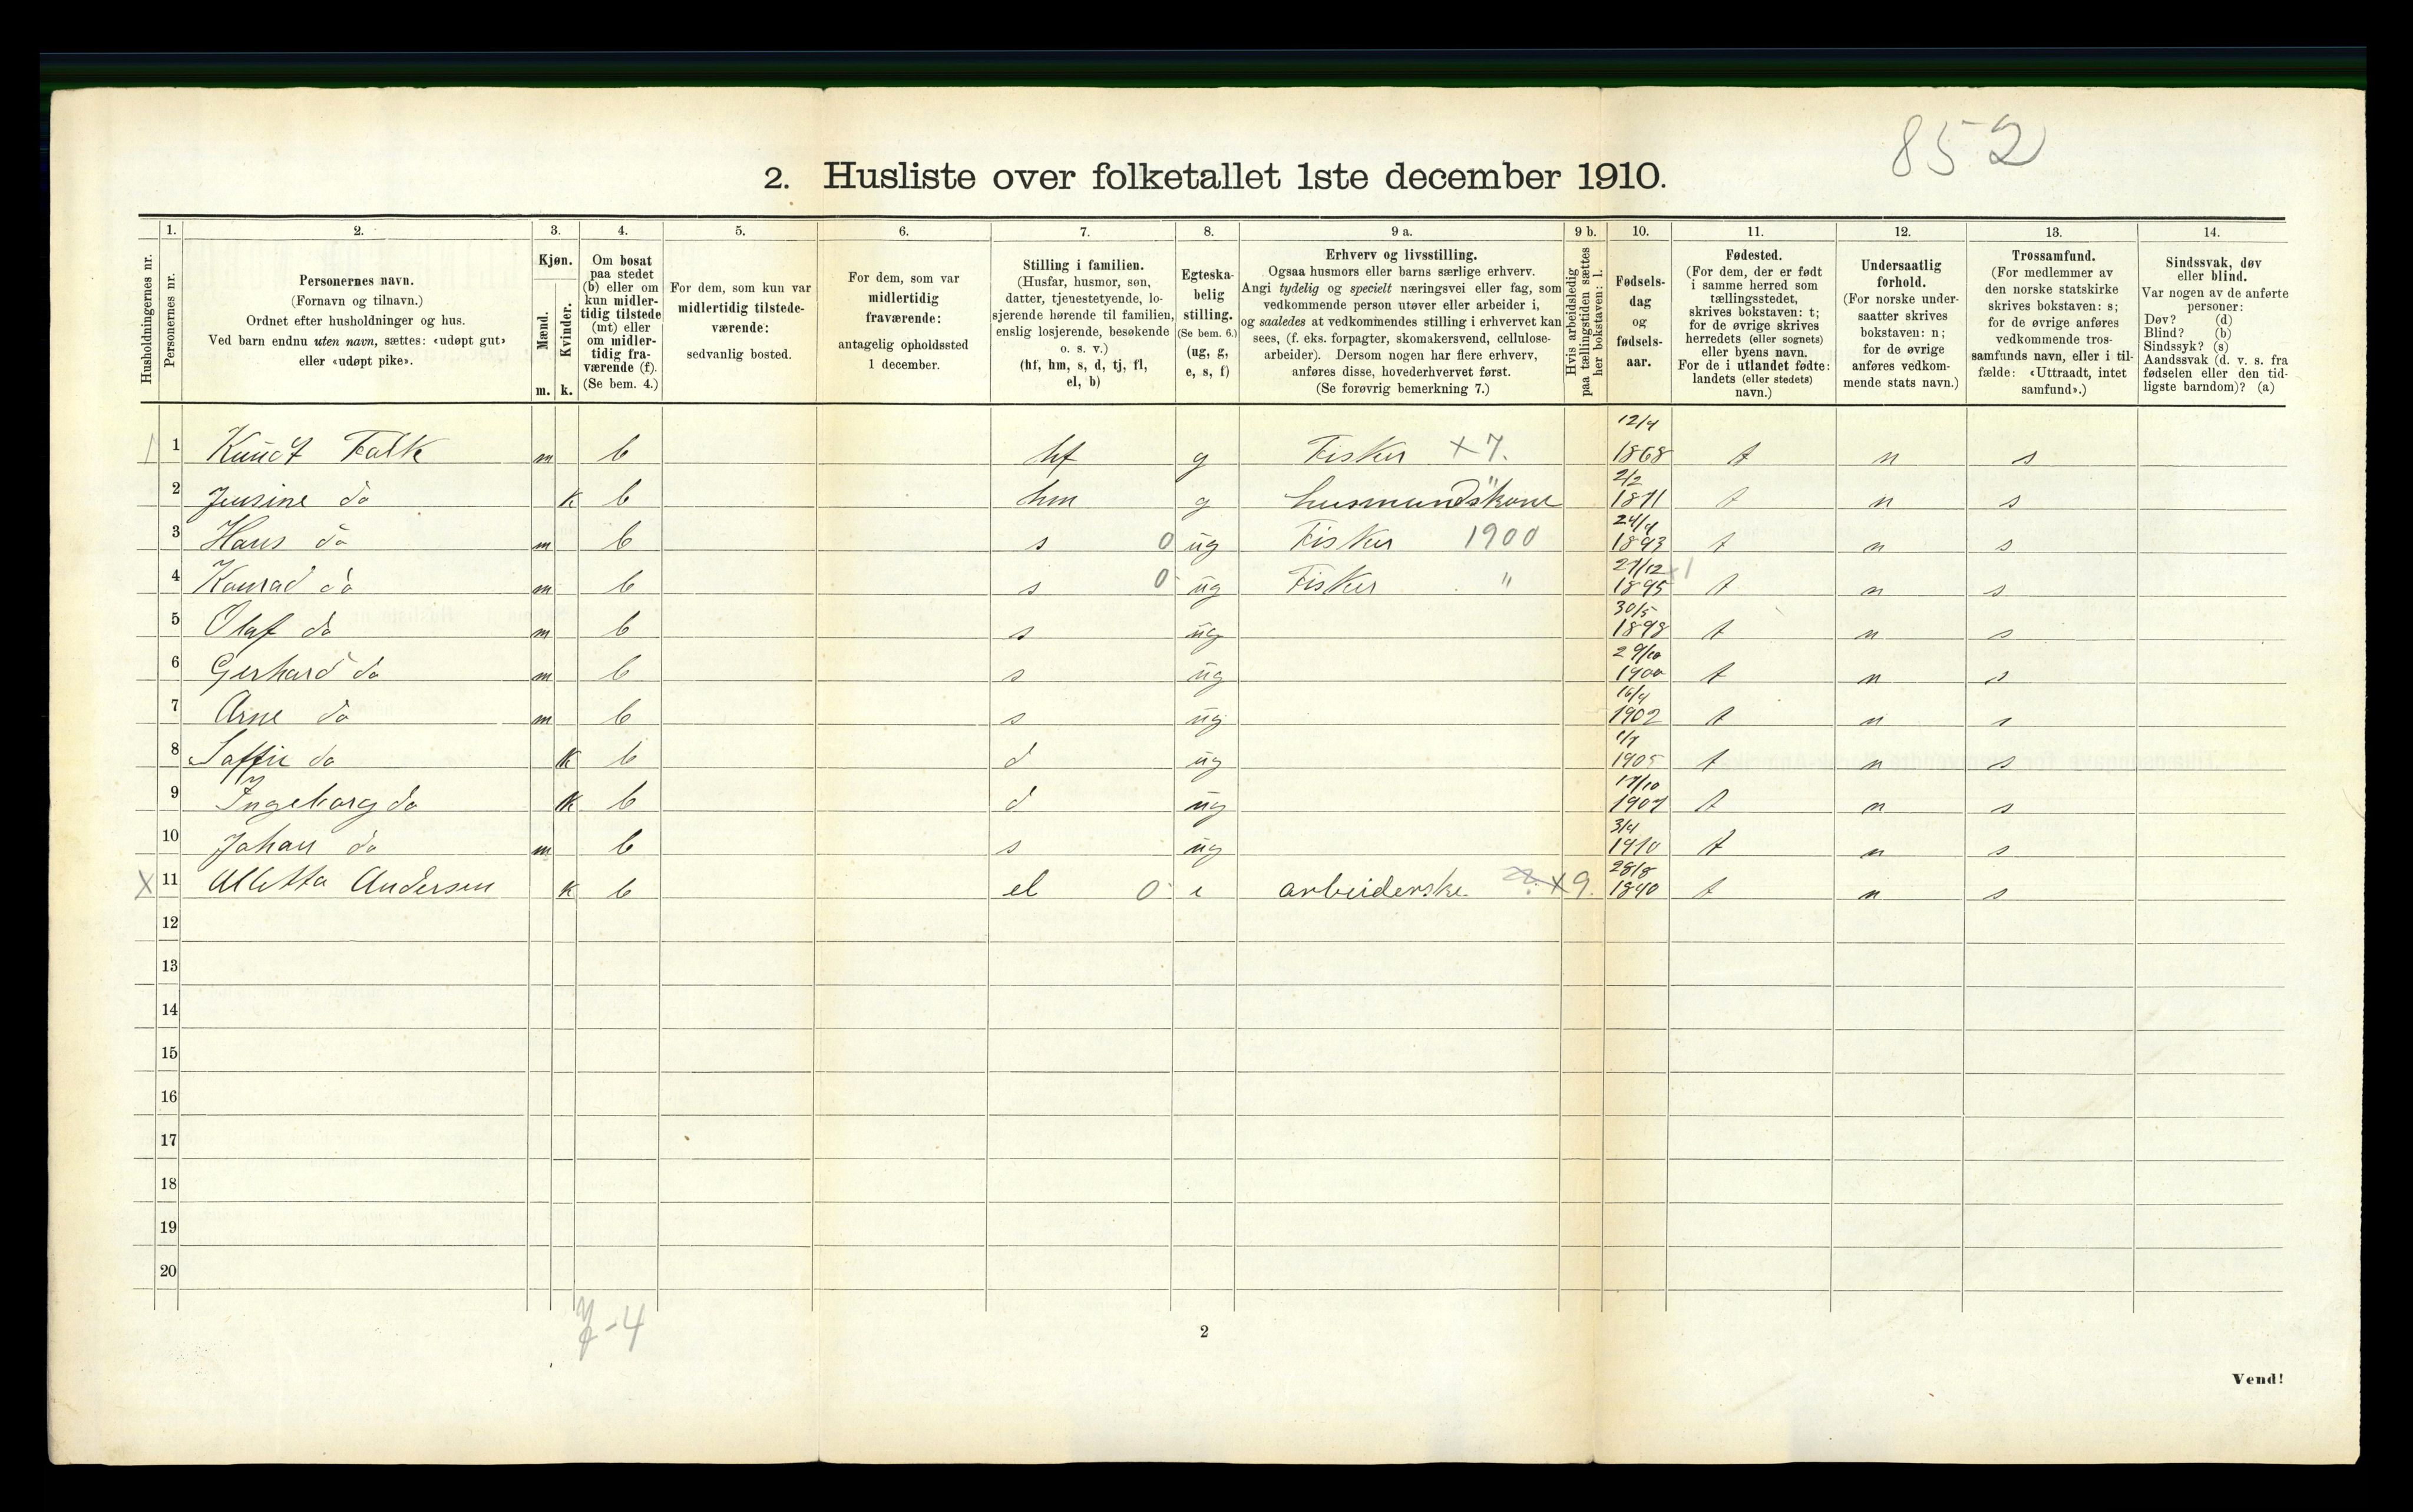 852
2. Husliste over folketallet 1ste december 1910.
Husholdningernes nr.
1.
Personernes nr.
2.
Personernes navn.
(Fornavn og tilnavn.)
Ordnet efter husholdninger og hus.
Ved barn endnu uten navn, sættes: «udøpt gut»
eller «udøpt pike».
3.
Kjøn.
Mænd.
Kvinder.
m.
k.
4.
Om bosat
paa stedet
(b) eller om
kun midler-
tidig tilstede
(mt) eller
om midler-
tidig fra-
værende (f).
(Se bem. 4.)
5.
For dem, som kun var
midlertidig tilstede-
værende:
sedvanlig bosted.
6.
For dem, som var
midlertidig
fraværende:
antagelig opholdssted
1 december.
7.
Stilling i familien.
(Husfar, husmor, søn,
datter, tjenestetyende, lo-
sjerende hørende til familien,
enslig losjerende, besøkende
o. s. v.)
(hf, hm, s, d, tj, fl,
el, b)
8.
Egteska-
belig
stilling.
(Se bem. 6.)
(ug, g,
e, s, f)
9 a.
Erhverv og livsstilling.
Ogsaa husmors eller barns særlige erhverv.
Angi tydelig og specielt næringsvei eller fag, som
vedkommende person utøver eller arbeider i,
og saaledes at vedkommendes stilling i erhvervet kan
sees, (f. eks. forpagter, skomakersvend, cellulose-
arbeider). Dersom nogen har flere erhverv,
anføres disse, hovederhvervet først.
(Se forøvrig bemerkning 7.)
9 b.
Hvis arbeidsledig
paa tællingstiden sættes
her bokstaven: l.
10.
Fødsels-
dag
og
fødsels-
aar.
11.
Fødested.
(For dem, der er født
i samme herred som
tællingsstedet,
skrives bokstaven: t;
for de øvrige skrives
herredets (eller sognets)
eller byens navn.
For de i utlandet fødte:
landets (eller stedets)
navn.)
12.
Undersaatlig
forhold.
(For norske under-
saatter skrives
bokstaven: n;
for de øvrige
anføres vedkom-
mende stats navn.)
13.
Trossamfund.
(For medlemmer av
den norske statskirke
skrives bokstaven: s;
for de øvrige anføres
vedkommende tros-
samfunds navn, eller i til-
fælde: «Uttraadt, intet
samfund».)
14.
Sindssvak, døv
eller blind.
Var nogen av de anførte
personer:
Døv? (d)
Blind? (b)
Sindssyk? (s)
Aandssvak (d. v. s. fra
fødselen eller den tid-
ligste barndom)? (a)
1 1 Knudt Falk m b hf g Fisker x7. 12/4 1868 t n s
2 Jensine do k b hm g husmundskone " 2/2 1871 t n s
3 Hans do m b s 0 ug Fisker 1900 24/4 1893 t n s
4 Konrad do m b s 0 ug Fisker " 27/12 1895 x1 t n s
5 Olaf do m b s ug 30/5 1898 t n s
6 Gerhard do m b s ug 29/10 1900 t n s
7 Arne do m b s ug 16/4 1902 t n s
8 Saffie do k b d ug 1905 t n s
9 Ingeborg do k b d ug 17/10 1907 t n s
10 Johan do m b s ug 3/4 1910 t n s
x 11 Alletta Andersen k b el 0 e arbeiderske x9. 28/8 1840 t n s
12
13
14
15
16
17
18
19
20
-4
2
Vend!